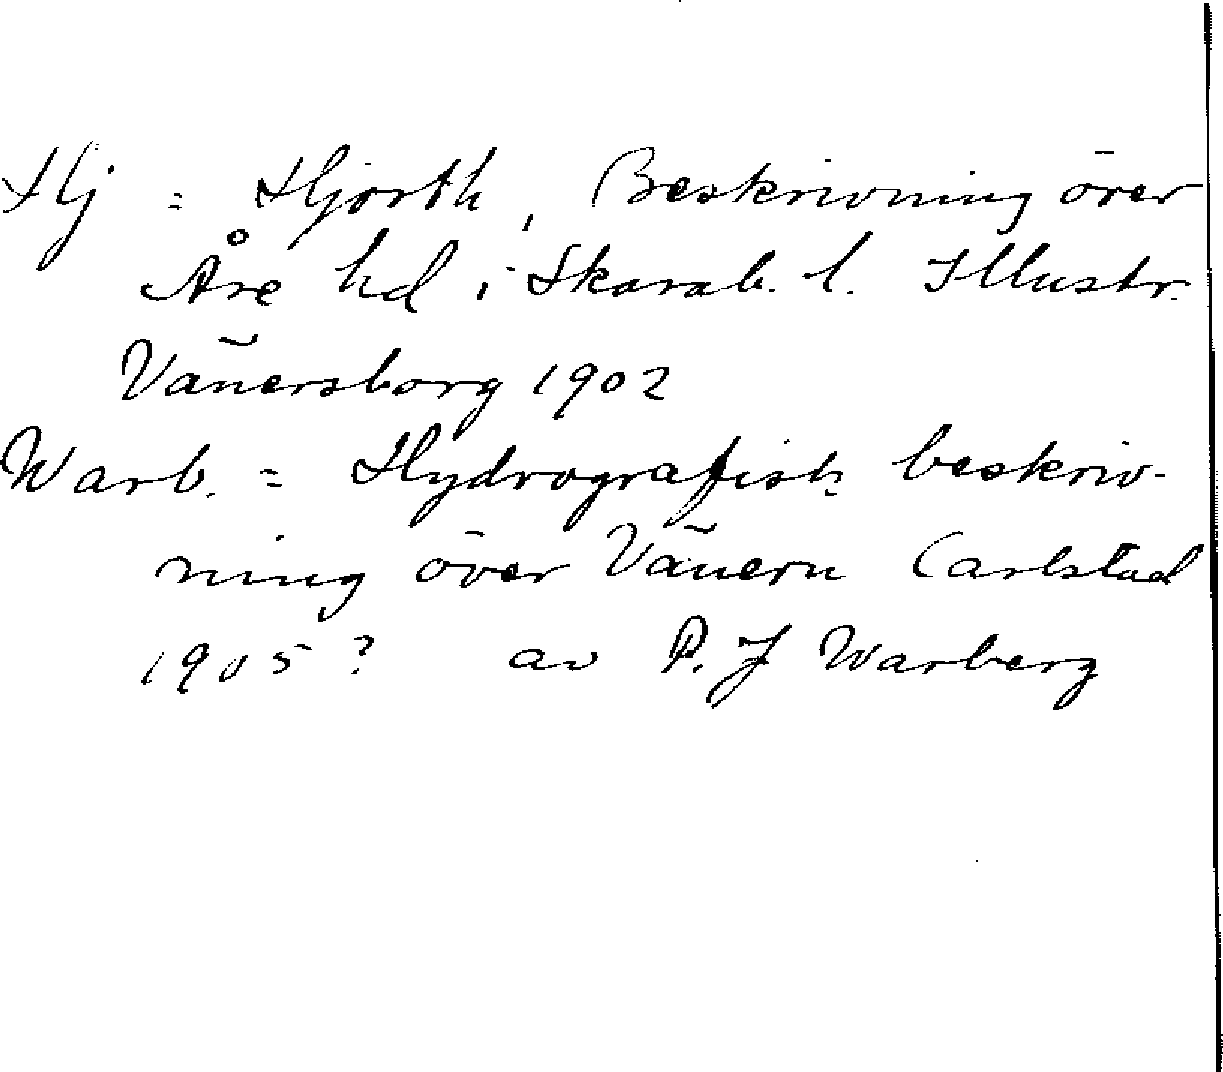 Hj = Hjorth, Beskrivning över
Åre hd i Skarab. l. Illustr.
Vänersborg 1902
Warb. = Hydrografisk beskriv-
ning över Vänern Carlstad
1905? av P. J Warberg